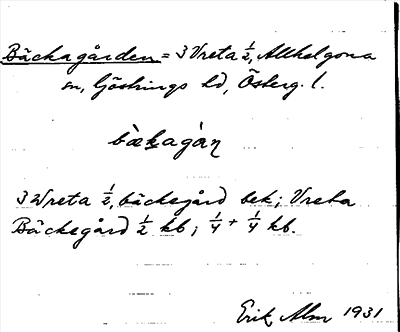 Bäckagården = 3 Vreta ½, Allhelgona
sn, Göstrings hd, Österg. l.
bæ̀kagàn
3 Wreta ½, bäckegård bek; Vreta
Bäckegård ½ kb; ¼ + ¼ kb.
Erik Alm 1931